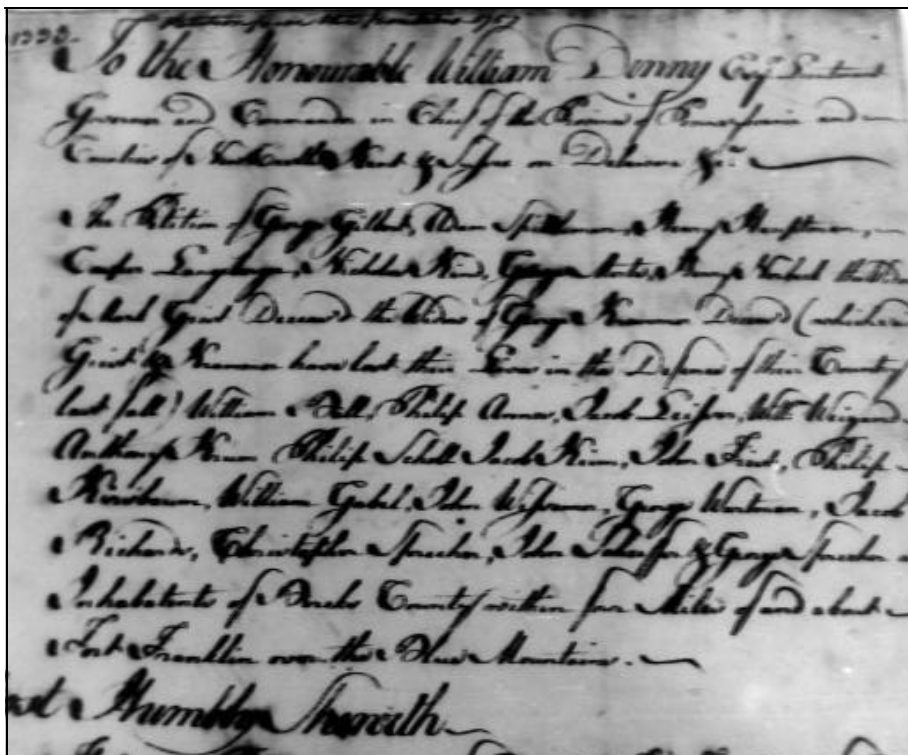 Petition from the Frontiers 1757
To the Honourable William Denny Esqr Lieutenant
Governor and Commander in Chief of the Province of Pennsylvania and
Counties of New Castle Kent & Sussex on Delaware &ca
The Petition of George Gilbert, Adam Spittleman, Henry Hauptman,
Casper Langberger, Nicholas Kind, George Henry the
of Deceas'd the Widow of George Krammer Deceas'd (which
Grist & Krammer have lost their Lives in the Defence of their County
last fall) William Ball, Philip Annes, Jacob Leisser, Will Weigand
Anthony Krum Philip Scholl Jacob Krim, John Frist, Philip
Kirschbaum, William Gabel, John Wissemer, George Wertman, Jacob
Richards, Christopher Sprecher, John & George Sprecher
Inhabitants of Berks County within four Miles of and about
Fort Franklin over the Blue Mountains.
Humbly Sheweth